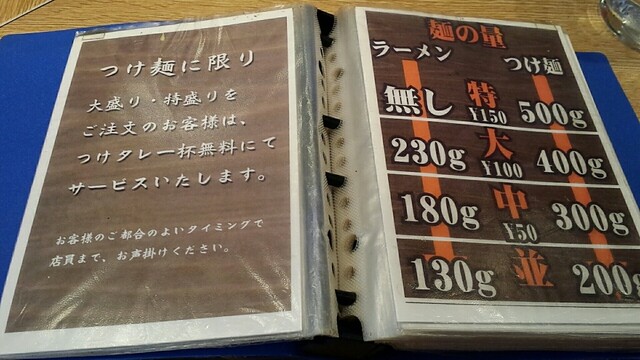 つけ麺に限り
大盛り・特盛りを
ご注文のお客様は、
つけタレ一杯無料にて
サービスいたします。
お客様のご都合のよいタイミングで
店員まで、お声掛けください。
麺の量
ラーメン つけ麺
無し 特 ¥150 500g
230g 大 ¥100 400g
180g 中 ¥50 300g
130g 並 200g